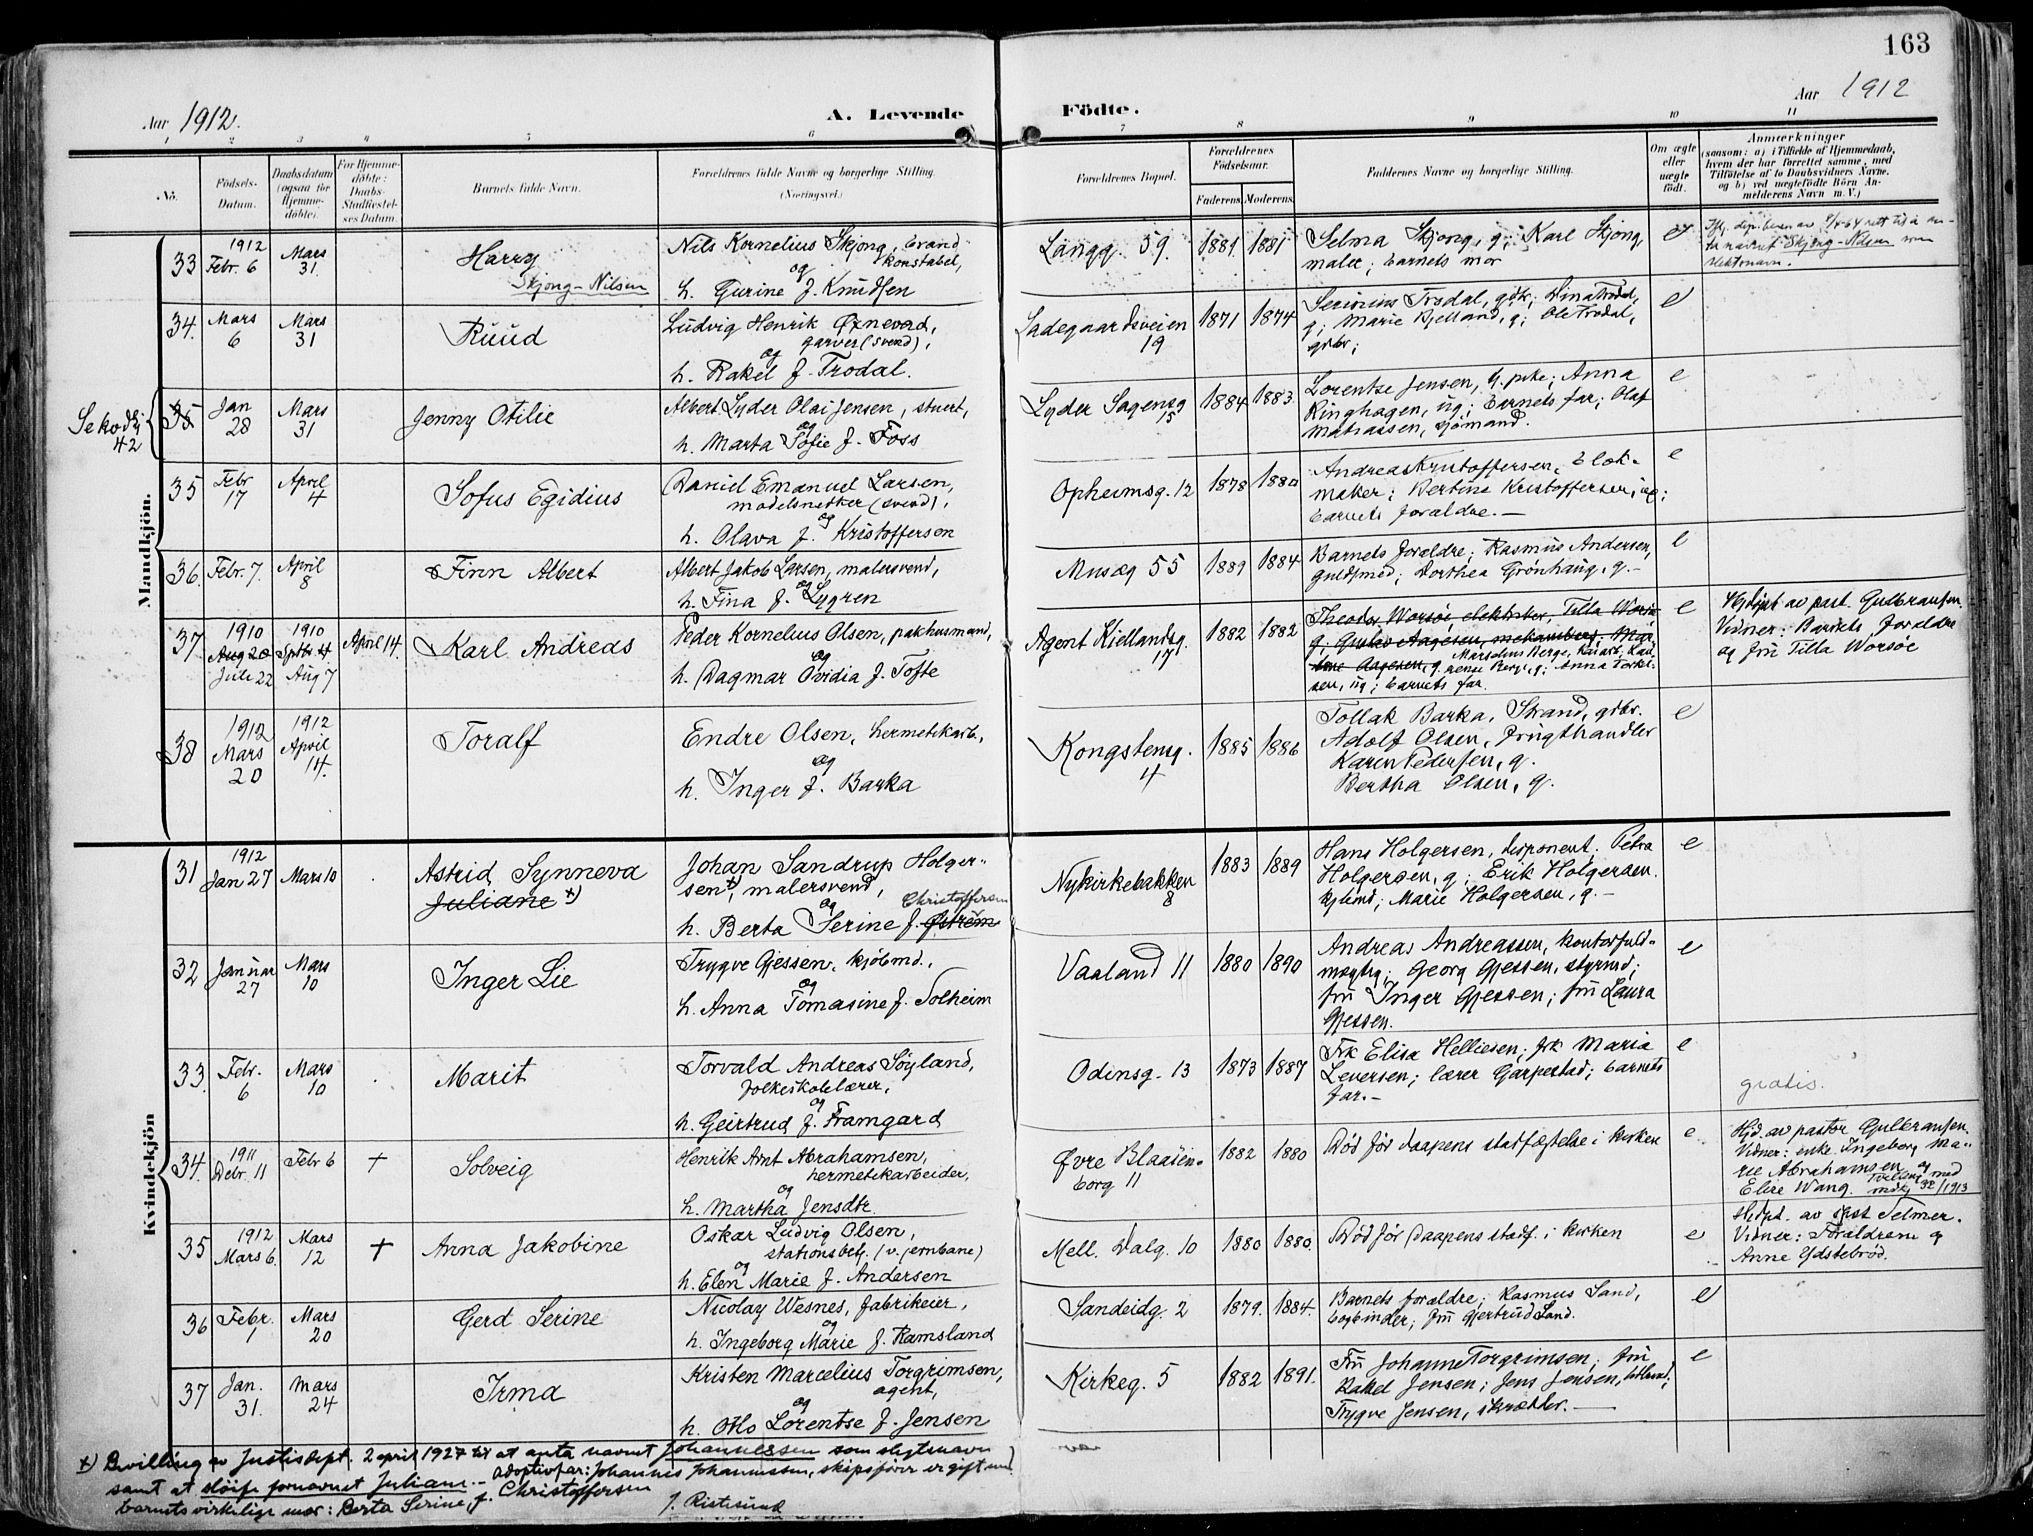 163
Aar 1912.
A. Levende
Födte.
Aar 1912
1 2 3 4 5 6 7 8 9 10 11
No.
Födsels-
Datum.
Daabsdatum
(ogsaa for
Hjemme-
döbte).
For Hjemme-
döbte:
Daabs-
Stadfæstel-
ses Datum.
Barnets fulde Navn.
Forældrenes fulde Navne og borgerlige Stilling.
(Næringsvei.)
Forældrenes Bopæl.
Forældrenes
Födselsaar.
Faderens. Moderens.
Faddernes Navne og borgerlige Stilling.
Om ægte
eller
uægte
födt.
Anmærkninger
(saasom: a) i Tilfælde af Hjemmedaab,
hvem der har forrettet samme, med
Tilföielse af to Daabsvidners Navne,
og b) ved uægtefödte Börn An-
melderens Navn m. V.)
Mandkjön.
33
1912
Febr. 6
Mars
31
Harry
Skjong-Nilsen
Nils Kornelius Skjong, brand-
konstabel,
og
h. Gurine f. Knudsen
Langg. 59.
1881. 1881
Selma Skjong, g; Karl Skjong,
maler; barnets mor
e
navnet Skjong-Nilsen som
slektsnavn.
34.
Mars
6
Mars
31
Ruud
Ludvig Henrik Øxnevad,
garver (svend),
og
h. Rakel f. Trodal.
Ladegaardsveien
19
1871 1874
Severine Trodal, gdbr; Dina Trodal,
g; Marie Bjelland, g; Ole Trodal,
gdbr;
e
Se kvdkj
42
35
Jan
28
Mars
31
Jenny Otilie
Albert Lyder Olai Jensen, stuert,
og
h. Marta Sofie f. Foss
Lyder Sagensg
15
1884 1883
Lorentse Jensen, h. pike; Anna
Ringhagen, ug; barnets far; Olaf
Matiassen, sjömand.
e
35
Febr
17
April
4
Sofus Egidius
Daniel Emanuel Larsen,
modelsnekker (svend),
og
h. Olava f. Kristoffersen
Opheimsg. 12
1878 1880
Andreas Kristoffersen, blok-
maker; Bertine Kristoffersen, ug;
barnets forældre. —
e
36.
Febr. 7.
April
8
Finn Albert
Albert Jakob Larsen, malersvend,
og
h. Fina f. Lygren
Musæg 55
1889 1884
Barnets forældre; Rasmus Andersen,
guldsmed; Dorthea Grönhaug, g. —
e
37.
1910
Aug 20
Juli 22
1910
Septbr 4
Aug 7
April 14.
Karl Andreas
Peder Kornelius Olsen, pakhusmand,
og
h. Dagmar Ovidia f. Tofte
Agent Kiellandsg.
17
1882 1882
Theodor Worsöe, elektriker, Tilla Worsöe
g; Gustav Aagesen, mekarbeid. Mar-
tine Aagesen, g. Marselius Berge, kaiarb, Kau-
rense Berge, g; Anna Torki-
sen, ug; barnets far.
e
Hjdpt av past. Gulbransen.
Vidner: Barnets forældre
og fru Tilla Worsöe
38
1912
Mars
20
1912
April
14.
Toralf
Endre Olsen, hermetikarb,
og
h. Inger f. Barka
Kongstensg.
4
1885 1886
Tollak Barka, Strand, gdbr.
Adolf Olsen, frugthandler
Karen Pedersen, g.
Bertha Olsen, g.
e
Kvindekjön
31
1912
Jan 27
Mars 10
Astrid Synneva
Juliane x)
Johan Sandrup Holger-
sen x), malersvend,
og Christoffersen
h. Berta Serine f. Öström
Nykirkebakken
8
1883 1889
Hans Holgersen, disponent. Petra
Holgersen, g; Erik Holgersen.
kjbmd; Marie Holgersen, g. —
e
32
Januar
27
Mars
10
Inger Lie
Trygve Gjessen, kjöbmd.,
og
h. Anna Tomasine f. Solheim
Vaaland 11
1880 1890
Andreas Andreassen, kontorfuld-
mægtig; Georg Gjessen, styrmd;
fru Inger Gjessen; fru Laura
Gjessen.
e
33
Febr.
6
Mars
10
Marit
Torvald Andreas Söyland,
folkeskolelærer,
og
h. Geirtrud f. Framgard
Odinsg. 13
1873 1887
Frk Elisa Helliesen; frk Maria
Leversen; lærer Garpestad; barnets
far. —
e
gratis.
34.
1911
Debr. 11
Febr 6
+
Solveig
Henrik Arnt Abrahamsen,
hermetikarbeider,
og
h. Martha Jensdtr.
Øvre Blaasen-
borg 11
1882 1880
Död för daapens stadfæstelse i kirken
e
Hjd. av pastor Gulbransen.
Vidner: enke Ingeborg Ma-
rie Abrahamsen og
Elise Wang. Tvilling med
35
1912
Mars 6.
Mars
12
+
Anna Jakobine
Oskar Ludvig Olsen,
stationsbetj. (v. jernbane)
og
h. Elen Marie f. Andersen
Mell. Dalg. 10
1880 1880.
Död för daapens stadf. i kirken
e
Hjdpt. av spst Selmer.
Vidner: Forældrene og
Anne Ydstebröd.
36
Febr.
1
Mars
20
Gerd Serine
Nicolay Wesnes, fabrikeier,
og
h. Ingeborg Marie f. Ramsland
Sandeidg. 2
1879. 1884.
Barnets forældre; Rasmus Sand,
bogbinder; fru Gjertrud Sand.
e
37
Jan.
31.
Mars
24
Irma
Kristen Marcelius Torgrimsen,
agent,
og
h. Otto Lorentse f. Jensen
Kirkeg. 5
1882 1891.
Fru Johanne Torgrimsen; fru
Rakel Jensen; Jens Jensen,
Trygve Jensen, skrædder. —
e
x) Bevilling av Justisdept. 2 april 1927 til at anta navnet Johannessen som slegtsnavn
samt at slöife fornavnet Juliane. — Adoptivfar: Johannes Johannessen, skipsförer er gift med
barnets virkelige mor: Berta Serine f. Christoffersen